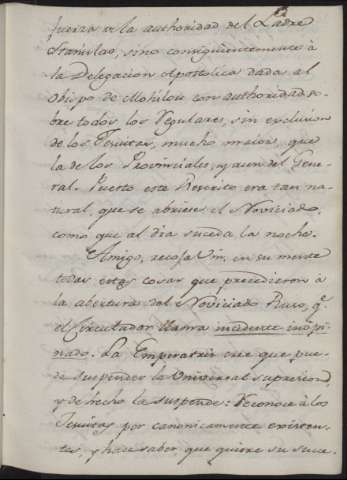 fuerza a la authoridad del Padre
Stanislao, sino consiguientemente à
la Delegacion Apostolica dada al
Obispo de Mohilou con authoridad so-
bre todos los Regulares, sin exclusion
de los Jesuitas, mucho maior, que
la de los Provinciales, y aun del Gene-
ral. Puesto este Decreto era tan na-
tural, que se abriese el Noviciado,
como que al dia suceda la noche.
Amigo, recoja Vm. en su mente
todas estas cosas que precedieron à
la abertura del Noviciado Ruso, q.e
el Circulador llama incidente inopi-
nado. La Emperatriz cree que pue-
de suspender la Universal supresion,
y de hecho la suspende: Reconoce à los
Jesuitas por canonicamente existen-
tes, y hace saber, que quiere su suce-